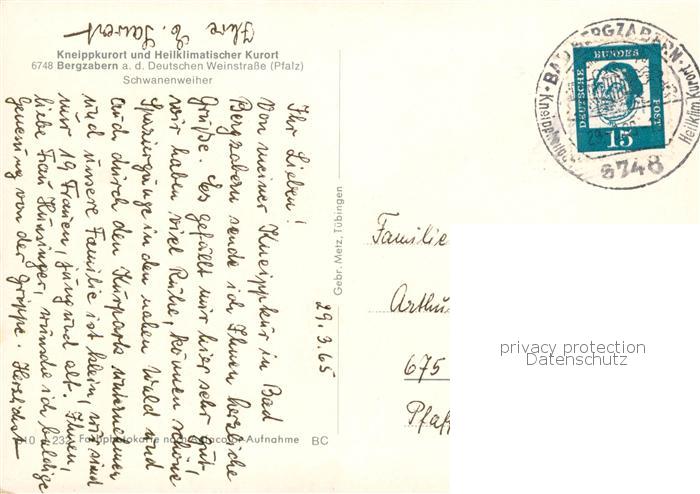 Kneippkurort und Heilklimatischer Kurort
6748 Bergzabern a. d. Deutschen Weinstraße (Pfalz)
Schwanenweiher
29.3.65
Ihr Lieben!
Von meiner Kneippkur in Bad
Bergzabern sende ich Ihnen herzliche
Grüße. Es gefällt mir hier sehr gut,
wir haben viel Ruhe, können schöne
Spaziergänge in den nahen Wald und
auch durch den Kurpark unternehmen
und unsere Familie ist klein, wir sind
nur 19 Frauen, jung und alt. Ihnen,
liebe Frau Hunsinger, wünsche ich baldige
Genesung von der Grippe. Herzlichst
Ihre
Gebr. Metz, Tübingen
Familie
Arthu
675
Pfaff
BAD BERGZABERN
Heilklim. Kurort
6748
DEUTSCHE BUNDESPOST
15
232 Farbphotokarte nach Agfacolor-Aufnahme BC
privacy protection
Datenschutz